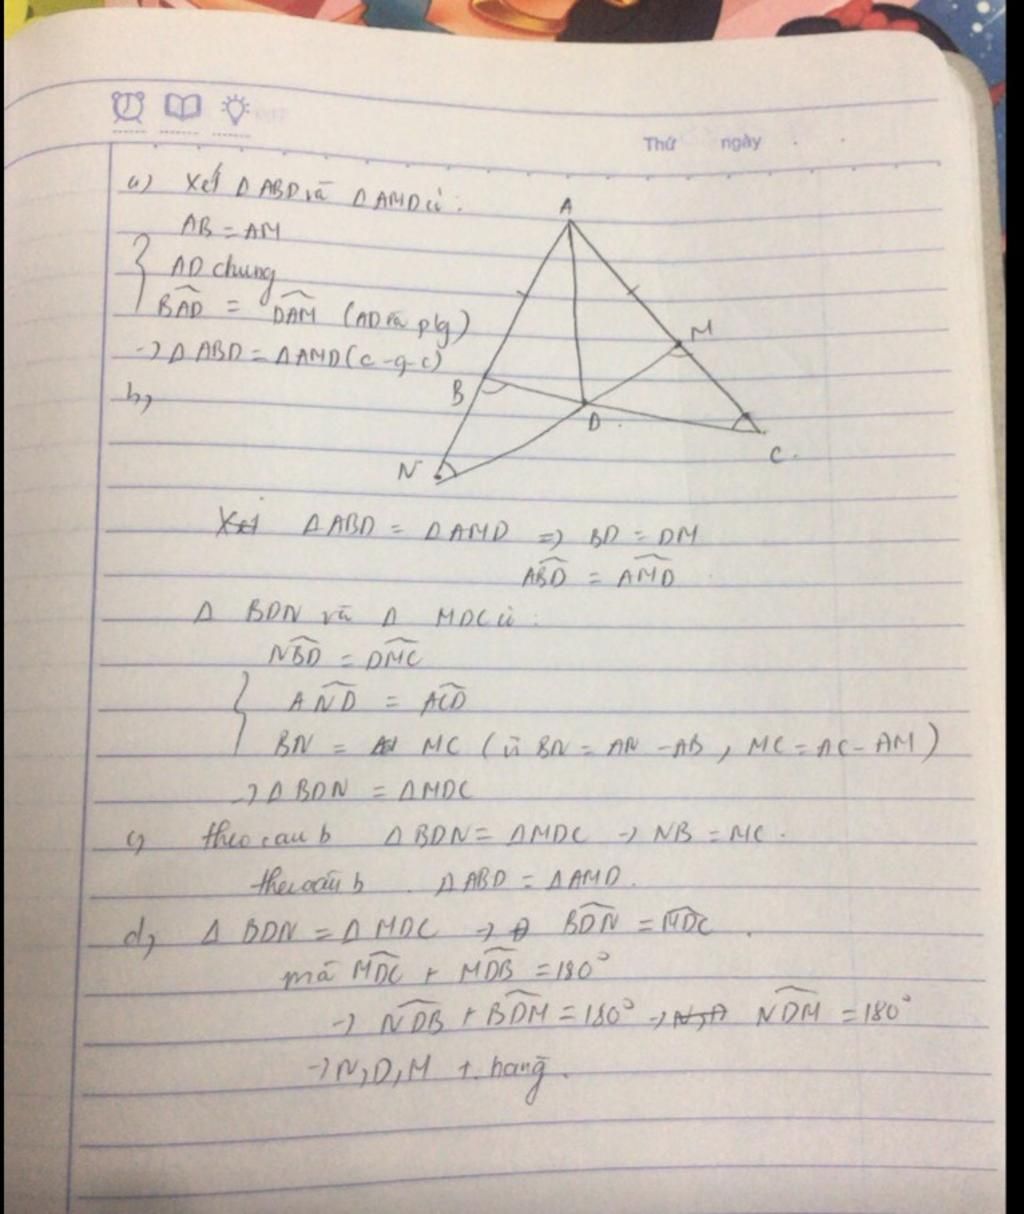 Thứ ngày
a) Xét Δ ABD và Δ AMD có :
AB = AM
AD chung
BAD = DAM (AD là p/g)
-> Δ ABD = Δ AMD (c-g-c)
b,
A
B
M
D
C
N
Xét Δ ABD = Δ AMD => BD = DM
ABD = AMD
Δ BDN và Δ MDC có :
NBD = DMC
AND = ACD
BN = MC (vì BN = AN - AB, MC = AC - AM)
-> Δ BDN = Δ MDC
c, theo câu b Δ BDN = Δ MDC -> NB = MC.
theo câu b Δ ABD = Δ AMD.
d, Δ BDN = Δ MDC -> BDN = MDC.
mà MDC + MDB = 180°
-> NDB + BDM = 180° -> NDM = 180°
-> N, D, M t. hàng.